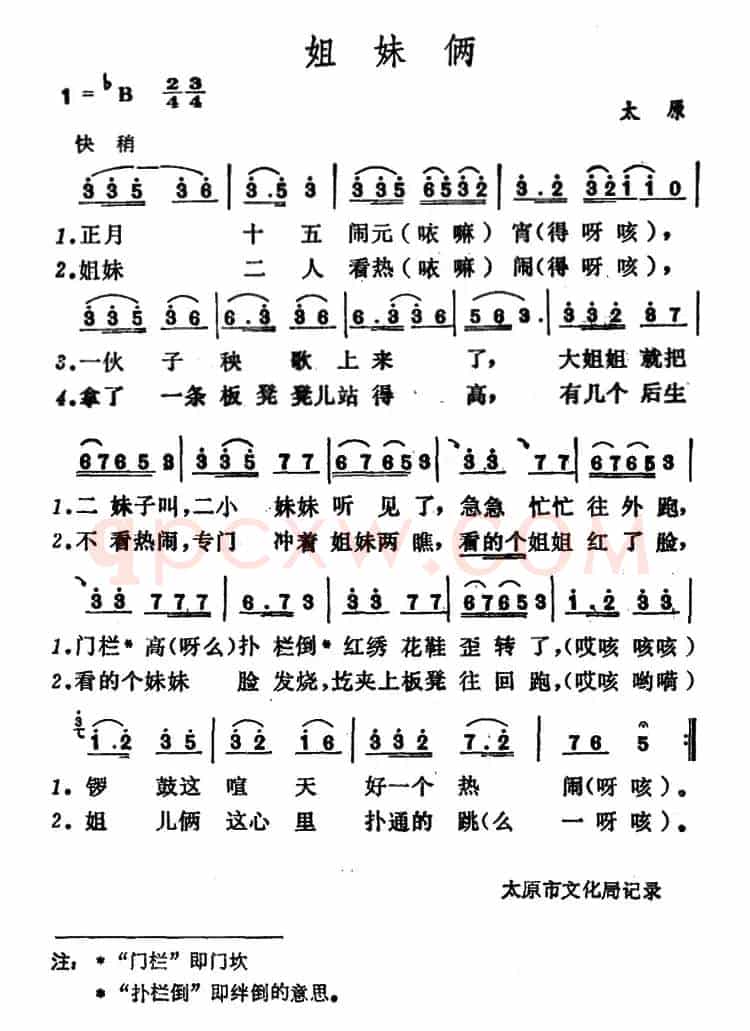 姐妹俩
1=♭B 2/4 3/4
太原
快稍
3 3 5 3 6 | 3.5 3 | 3 3 5 6532 | 3.2 32110 |
1.正月 十五闹元(咴嘛)宵(得呀咳),
2.姐妹 二人看热(咴嘛)闹(得呀咳),
3 3 5 3 6 | 6.3 3 6 | 6.3 3 6 | 5 6 3. | 3 3 2 8 7 |
3.一伙子秧歌上来了,大姐姐就把
4.拿了一条板凳凳儿站得高,有几个后生
67653 | 3 3 5 7 7 | 67653 | 3 3 5 7 7 | 67653 |
1.二妹子叫,二小妹妹听见了,急急忙忙往外跑,
2.不看热闹,专门冲着姐妹两瞧,看的个姐姐红了脸,
3 3 7 7 7 | 6.7 3 | 3 3 7 7 | 67653 | 1.2 3 3 |
1.门栏*高(呀么)扑栏倒*红绣花鞋歪转了,(哎咳咳咳)
2.看的个妹妹脸发烧,圪夹上板凳往回跑,(哎咳哟嗬)
3 1.2 3 5 | 6.2 7 6 | 5 3 3 2 | 7.2 | 7 6 5 :||
1.锣鼓这喧天好一个热闹(呀咳)。
2.姐儿俩这心里扑通的跳(么一呀咳)。
太原市文化局记录
注:*“门栏”即门坎
*“扑栏倒”即绊倒的意思。
qpcxw.COM